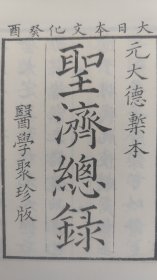 酉癸化文本日大
元大德槧本
聖濟總錄
醫學聚珍版